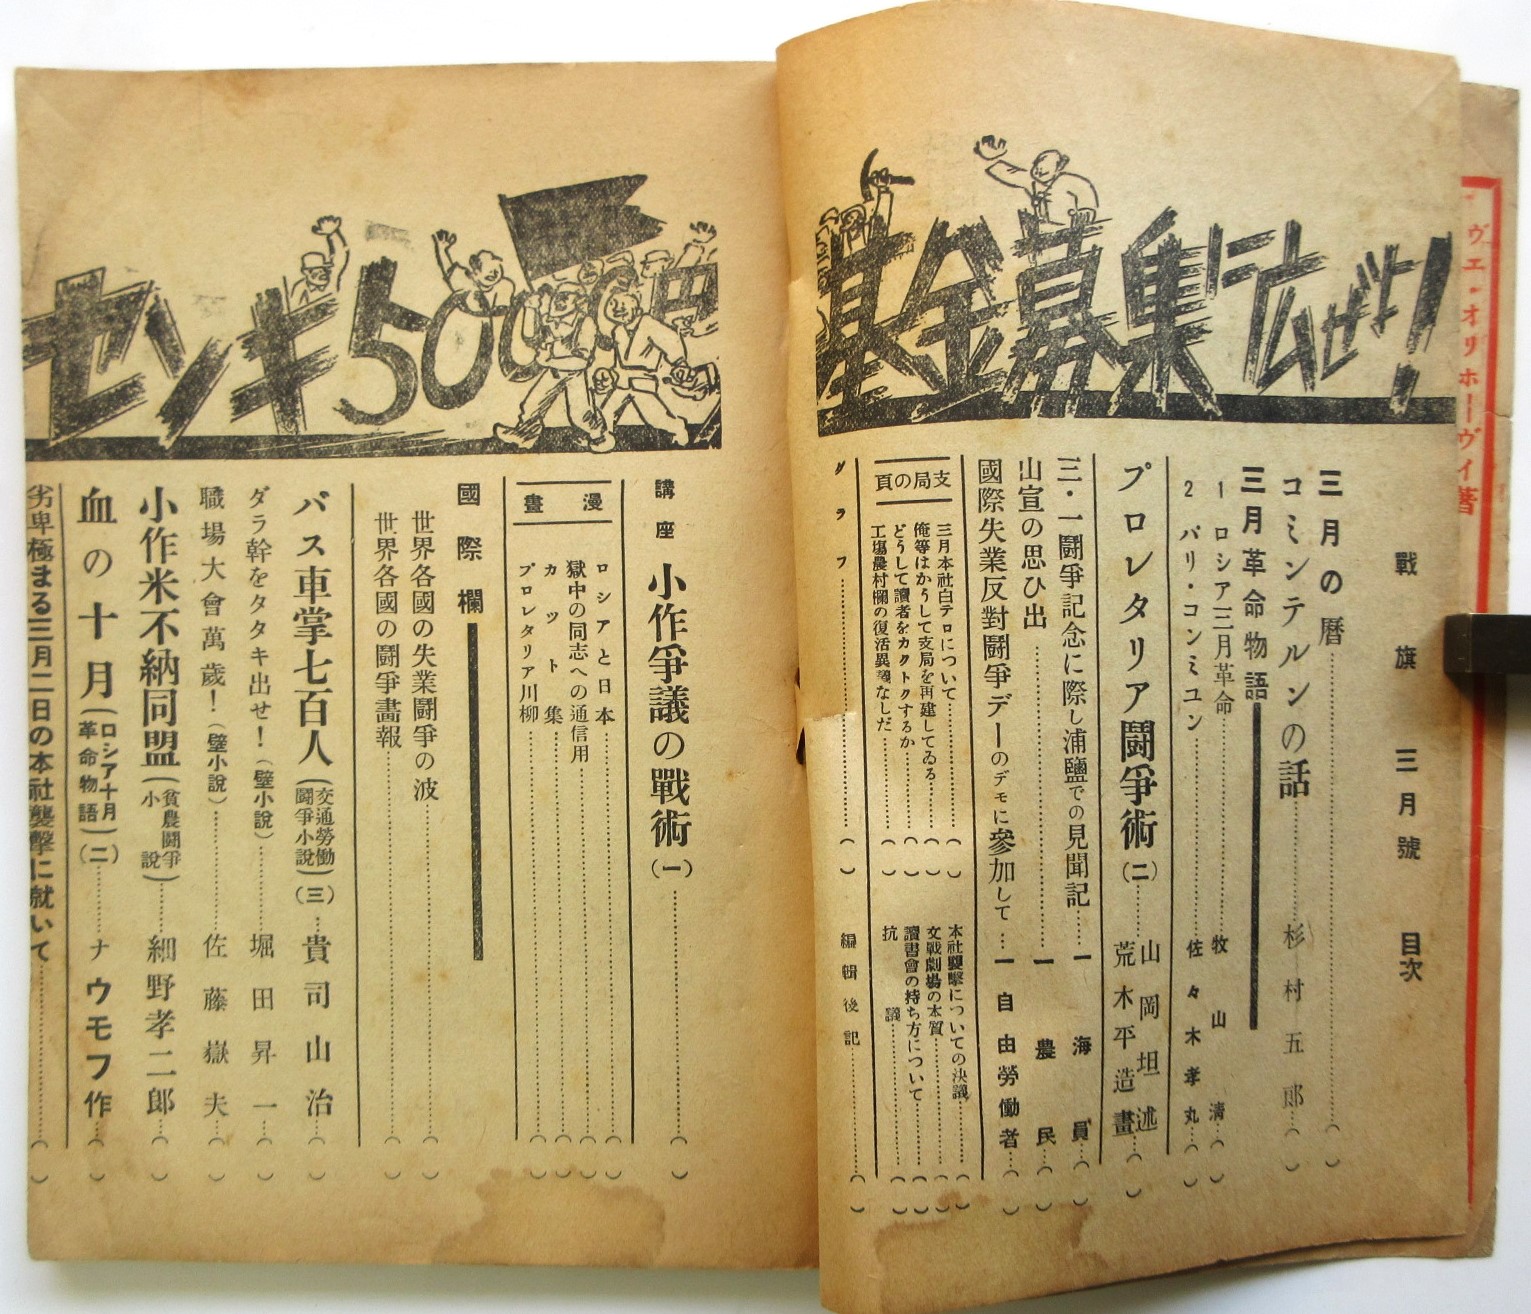 ヴエ・オリホーヴイ著
戰旗 三月號 目次
基金募集に応ぜよ!
三月の暦
コミンテルンの話 杉村五郎
三月革命物語
1 ロシア三月革命 牧山清
2 パリ・コンミユン 佐々木孝丸
プロレタリア鬪爭術(二) 山岡坦述 荒木平造畫
三・一鬪爭記念に際し浦鹽での見聞記 一海員
山宣の思ひ出 一農民
國際失業反對鬪爭デーのデモに參加して 一自由勞働者
支局の頁
三月本社白テロについて
俺等はかうして支局を再建してゐる
どうして讀者をカクトクするか
工塲農村欄の復活異議なしだ
本社襲擊についての決議
文戰劇場の本質
讀書會の持ち方について
抗議
グラフ
編輯後記
センキ5000円
講座 小作爭議の戰術(一)
漫畫
ロシアと日本
獄中の同志への通信用
カット集
プロレタリア川柳
國際欄
世界各國の失業鬪爭の波
世界各國の鬪爭畫報
バス車掌七百人(交通勞働鬪爭小說)(三) 貴司山治
ダラ幹をタタキ出せ!(壁小說) 堀田昇一
職場大會萬歲!(壁小說) 佐藤嶽夫
小作米不納同盟(貧農鬪爭小說) 細野孝二郎
血の十月(ロシア十月革命物語)(二) ナウモフ作
劣卑極まる三月二日の本社襲擊に就いて